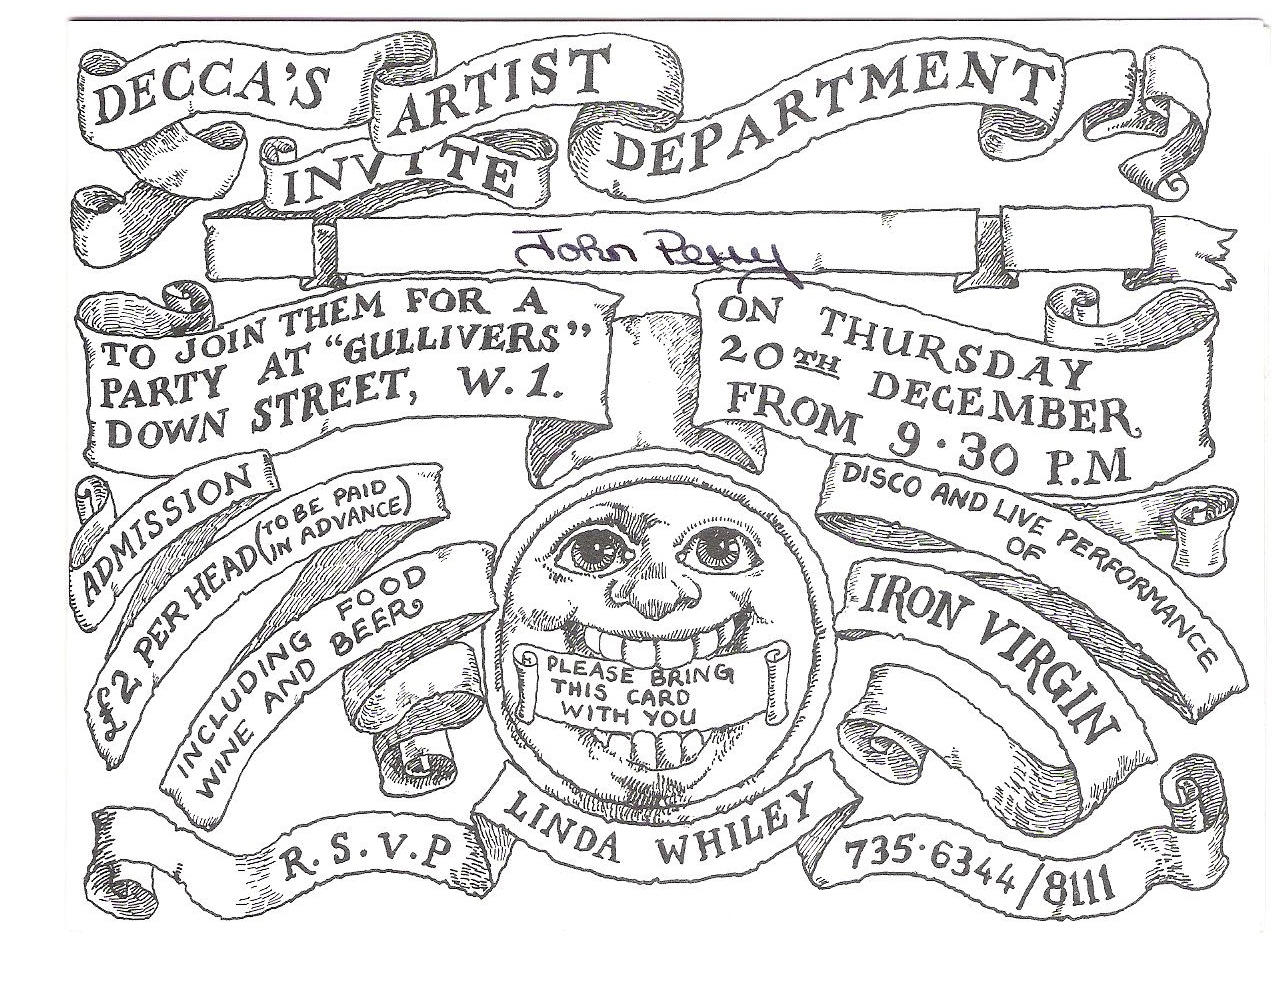 DECCA'S ARTIST DEPARTMENT
INVITE
John Perry
TO JOIN THEM FOR A
PARTY AT "GULLIVERS"
DOWN STREET, W.1.
ON THURSDAY
20TH DECEMBER
FROM 9·30 P.M
ADMISSION
£2 PER HEAD (TO BE PAID
IN ADVANCE)
INCLUDING FOOD
WINE AND BEER
PLEASE BRING
THIS CARD
WITH YOU
DISCO AND LIVE PERFORMANCE
OF
IRON VIRGIN
R.S.V.P
LINDA WHILEY
735·6344/8111